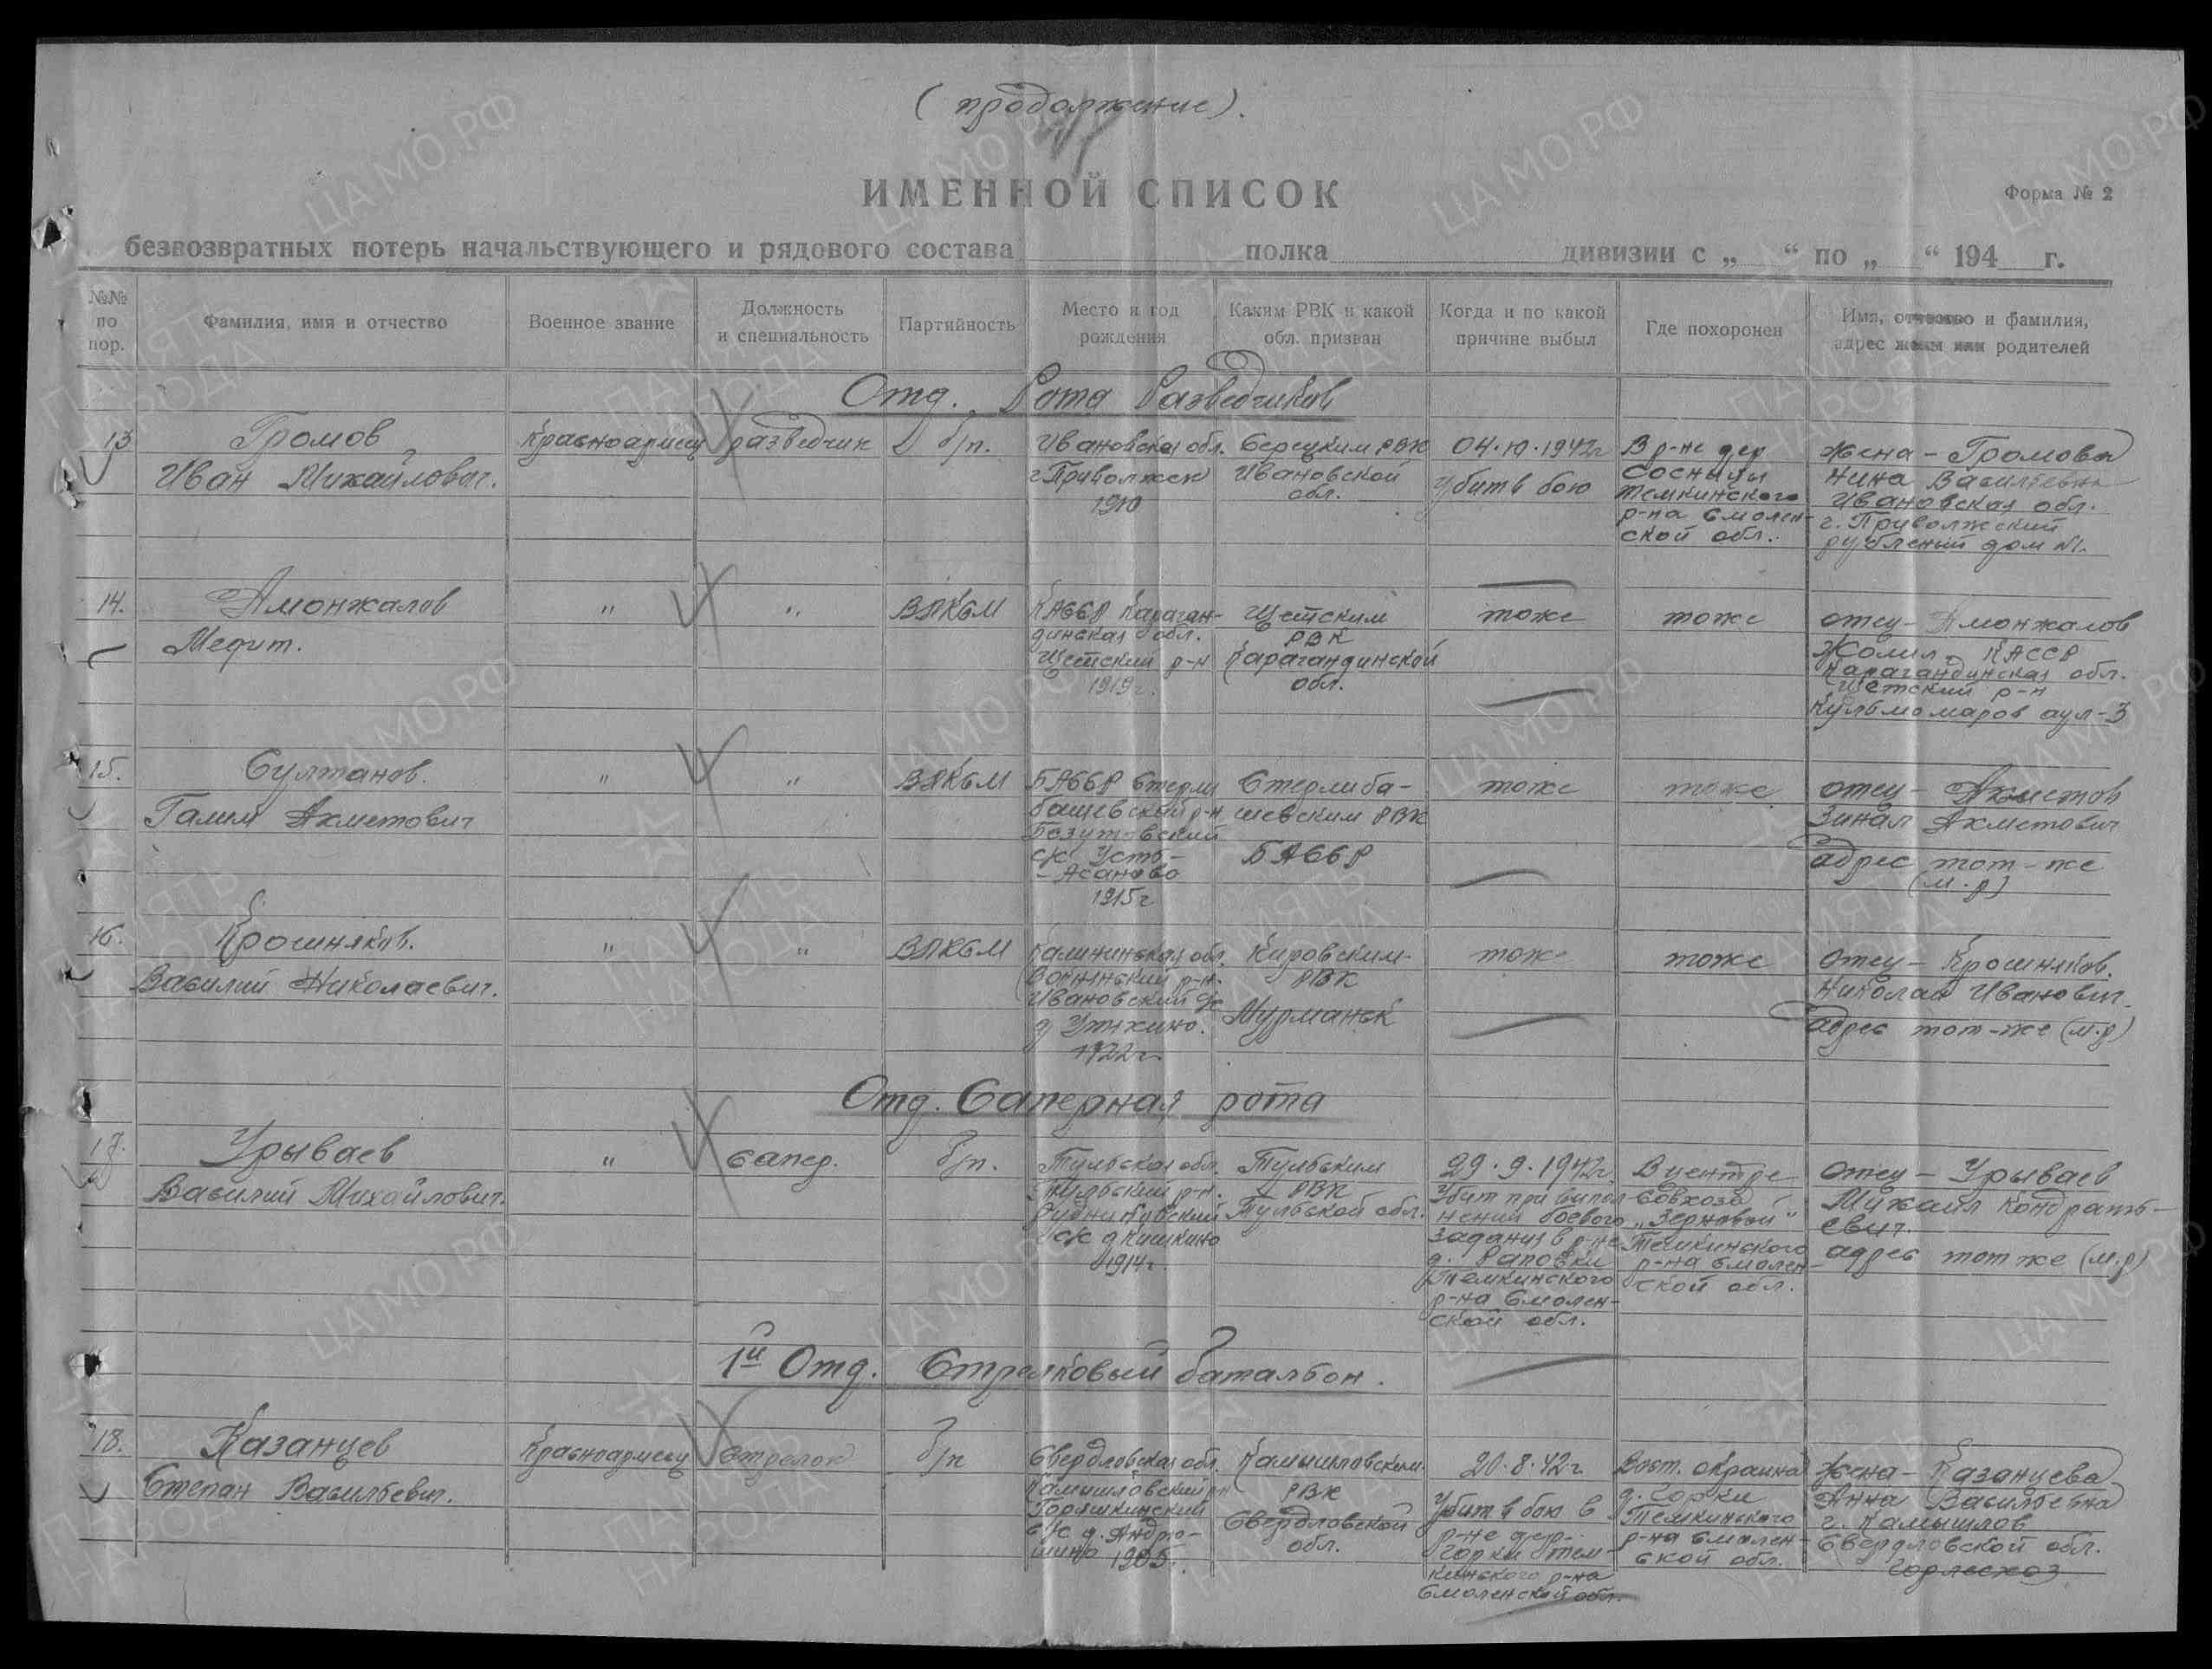 (продолжение).
ИМЕННОЙ СПИСОК
Форма № 2
безвозвратных потерь начальствующего и рядового состава полка дивизии с „ “ по „ “ 194 г.
№№ по пор.
Фамилия, имя и отчество
Военное звание
Должность и специальность
Партийность
Место и год рождения
Каким РВК и какой обл. призван
Когда и по какой причине выбыл
Где похоронен
Имя, отчество и фамилия, адрес жены или родителей
Отд. Рота Разведчиков
13
Громов
Иван Михайлович.
Красноармеец
разведчик
б/п.
Ивановская обл.
г. Приволжск
1910
РВК
Ивановской
обл.
04.10.1942г
Убит в бою
В р-не дер
Сосницы
Темкинского
р-на Смолен-
ской обл.
жена - Громова
Нина Васильевна
Ивановская обл.
г. Приволжский
рубленый дом №1.
14.
Амонжалов
Медит.
"
"
ВЛКСМ
КАССР Караган-
динская обл.
Щетский р-н
1919г.
Щетским
РВК
Карагандинской
обл.
тоже
тоже
отец - Амонжалов
Жолил. КАССР
Карагандинская обл.
Щетский р-н
аул-3
15.
Султанов.
Галим Ахметович
"
"
ВЛКСМ
БАССР Стерли
башевский р-н
с/с Усть-
-Асаново
1915г
Стерлиба-
шевским РВК
БАССР
тоже
тоже
отец - Ахметов
Зинал Ахметович
адрес тот-же
(м.р)
16.
Крошняков.
Василий Николаевич.
"
"
ВЛКСМ
Калининская обл.
р-н.
Ивановский с/с
д Утехино.
1922г.
Кировским
РВК
Мурманск
тоже
тоже
отец - Крошняков.
Николай Иванович
адрес тот-же (м.р)
Отд. Саперная рота
17.
Урываев
Василий Михайлович.
"
сапер.
б/п.
Тульская обл.
Тульский р-н.
с/с д Кишкино
1914г.
Тульским
РВК
Тульской обл.
29.9.1942г.
Убит при выпол-
нении боевого
задания в р-не
д. Раповки
Темкинского
р-на Смолен-
ской обл.
В центре
совхоза
„Зерновой“
Темкинского
р-на Смолен-
ской обл.
отец - Урываев
Михаил Кондрать-
евич.
адрес тот же (м.р)
1й Отд. Стрелковый батальон.
18.
Казанцев
Степан Васильевич.
Красноармеец
Стрелок
б/п
Свердловская обл.
Камышловский р-н
с/с д. Андрю-
шино 1905.
Камышловским
РВК
Свердловской
обл.
20.8.42г.
Убит в бою в
р-не дер.
Горки Тем-
кинского р-на
Смоленской обл.
Вост. окраина
д. Горки
Темкинского
р-на Смолен-
ской обл.
жена - Казанцева
Анна Васильевна
г. Камышлов
Свердловской обл.
горлесхоз